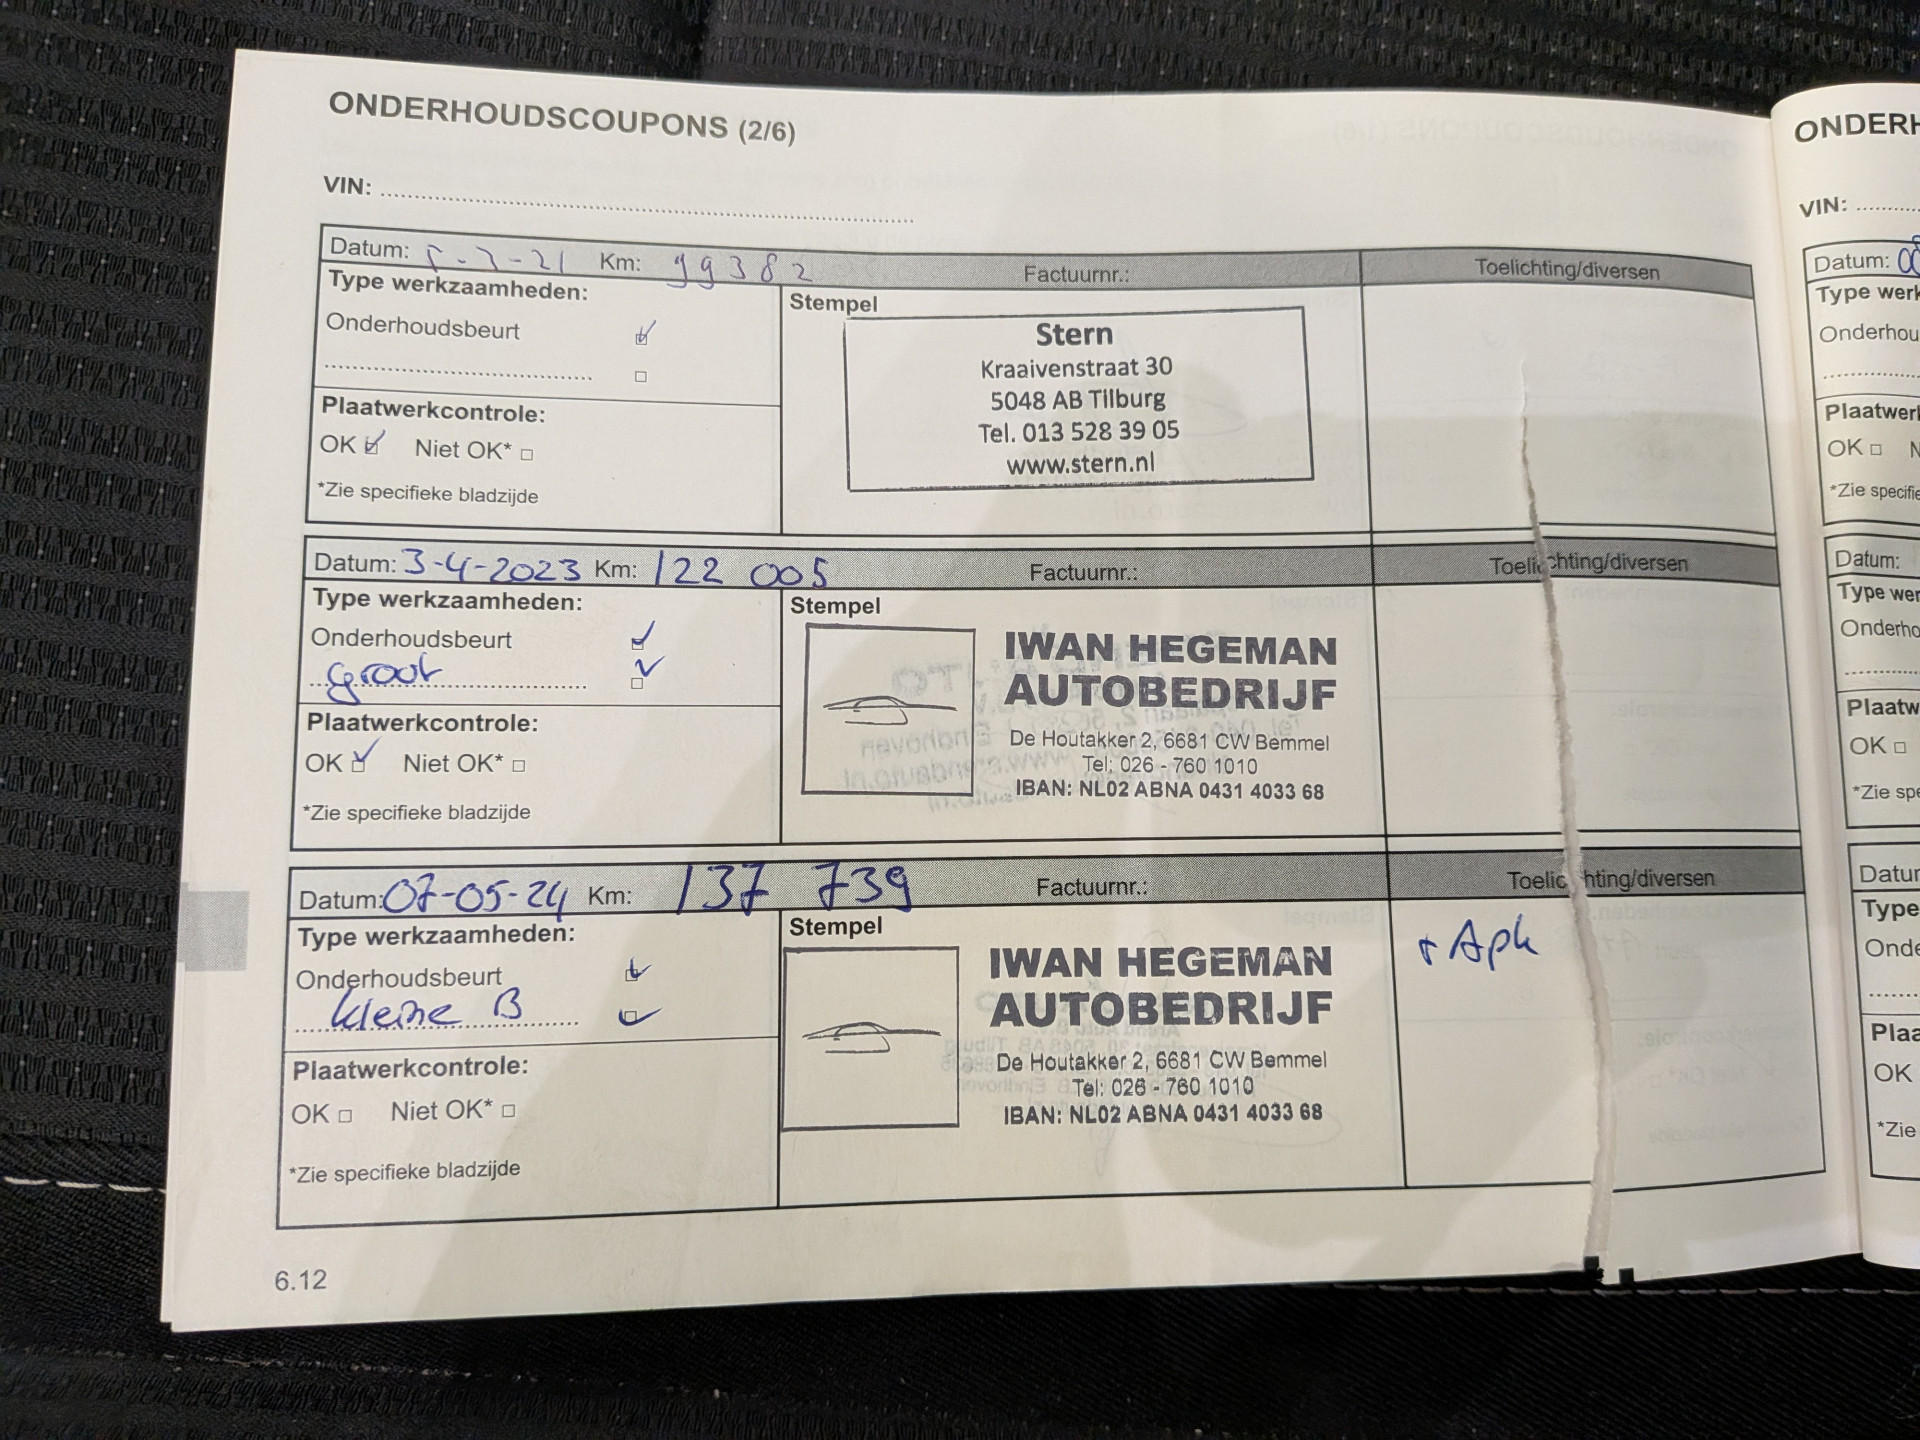 ONDERHOUDSCOUPONS (2/6)
VIN:
Datum: 5-3-21 Km: 99382 Factuurnr.: Toelichting/diversen
Type werkzaamheden:
Onderhoudsbeurt
Plaatwerkcontrole:
OK Niet OK*
*Zie specifieke bladzijde
Stempel
Stern
Kraaivenstraat 30
5048 AB Tilburg
Tel. 013 528 39 05
www.stern.nl
Datum: 3-4-2023 Km: 122 005 Factuurnr.: Toelichting/diversen
Type werkzaamheden:
Onderhoudsbeurt
groot
Plaatwerkcontrole:
OK Niet OK*
*Zie specifieke bladzijde
Stempel
IWAN HEGEMAN
AUTOBEDRIJF
De Houtakker 2, 6681 CW Bemmel
Tel: 026 - 760 1010
IBAN: NL02 ABNA 0431 4033 68
Datum: 07-05-24 Km: 137 739 Factuurnr.: Toelichting/diversen
Type werkzaamheden:
Onderhoudsbeurt
kleine B
Plaatwerkcontrole:
OK Niet OK*
*Zie specifieke bladzijde
Stempel
IWAN HEGEMAN
AUTOBEDRIJF
De Houtakker 2, 6681 CW Bemmel
Tel: 026 - 760 1010
IBAN: NL02 ABNA 0431 4033 68
+ Apk
6.12
ONDERH
VIN:
Datum:
Type werk
Onderhou
Plaatwerk
OK N
*Zie specifie
Datum:
Type wer
Onderho
Plaatw
OK
*Zie spe
Datur
Type
Onde
Plaa
OK
*Zie